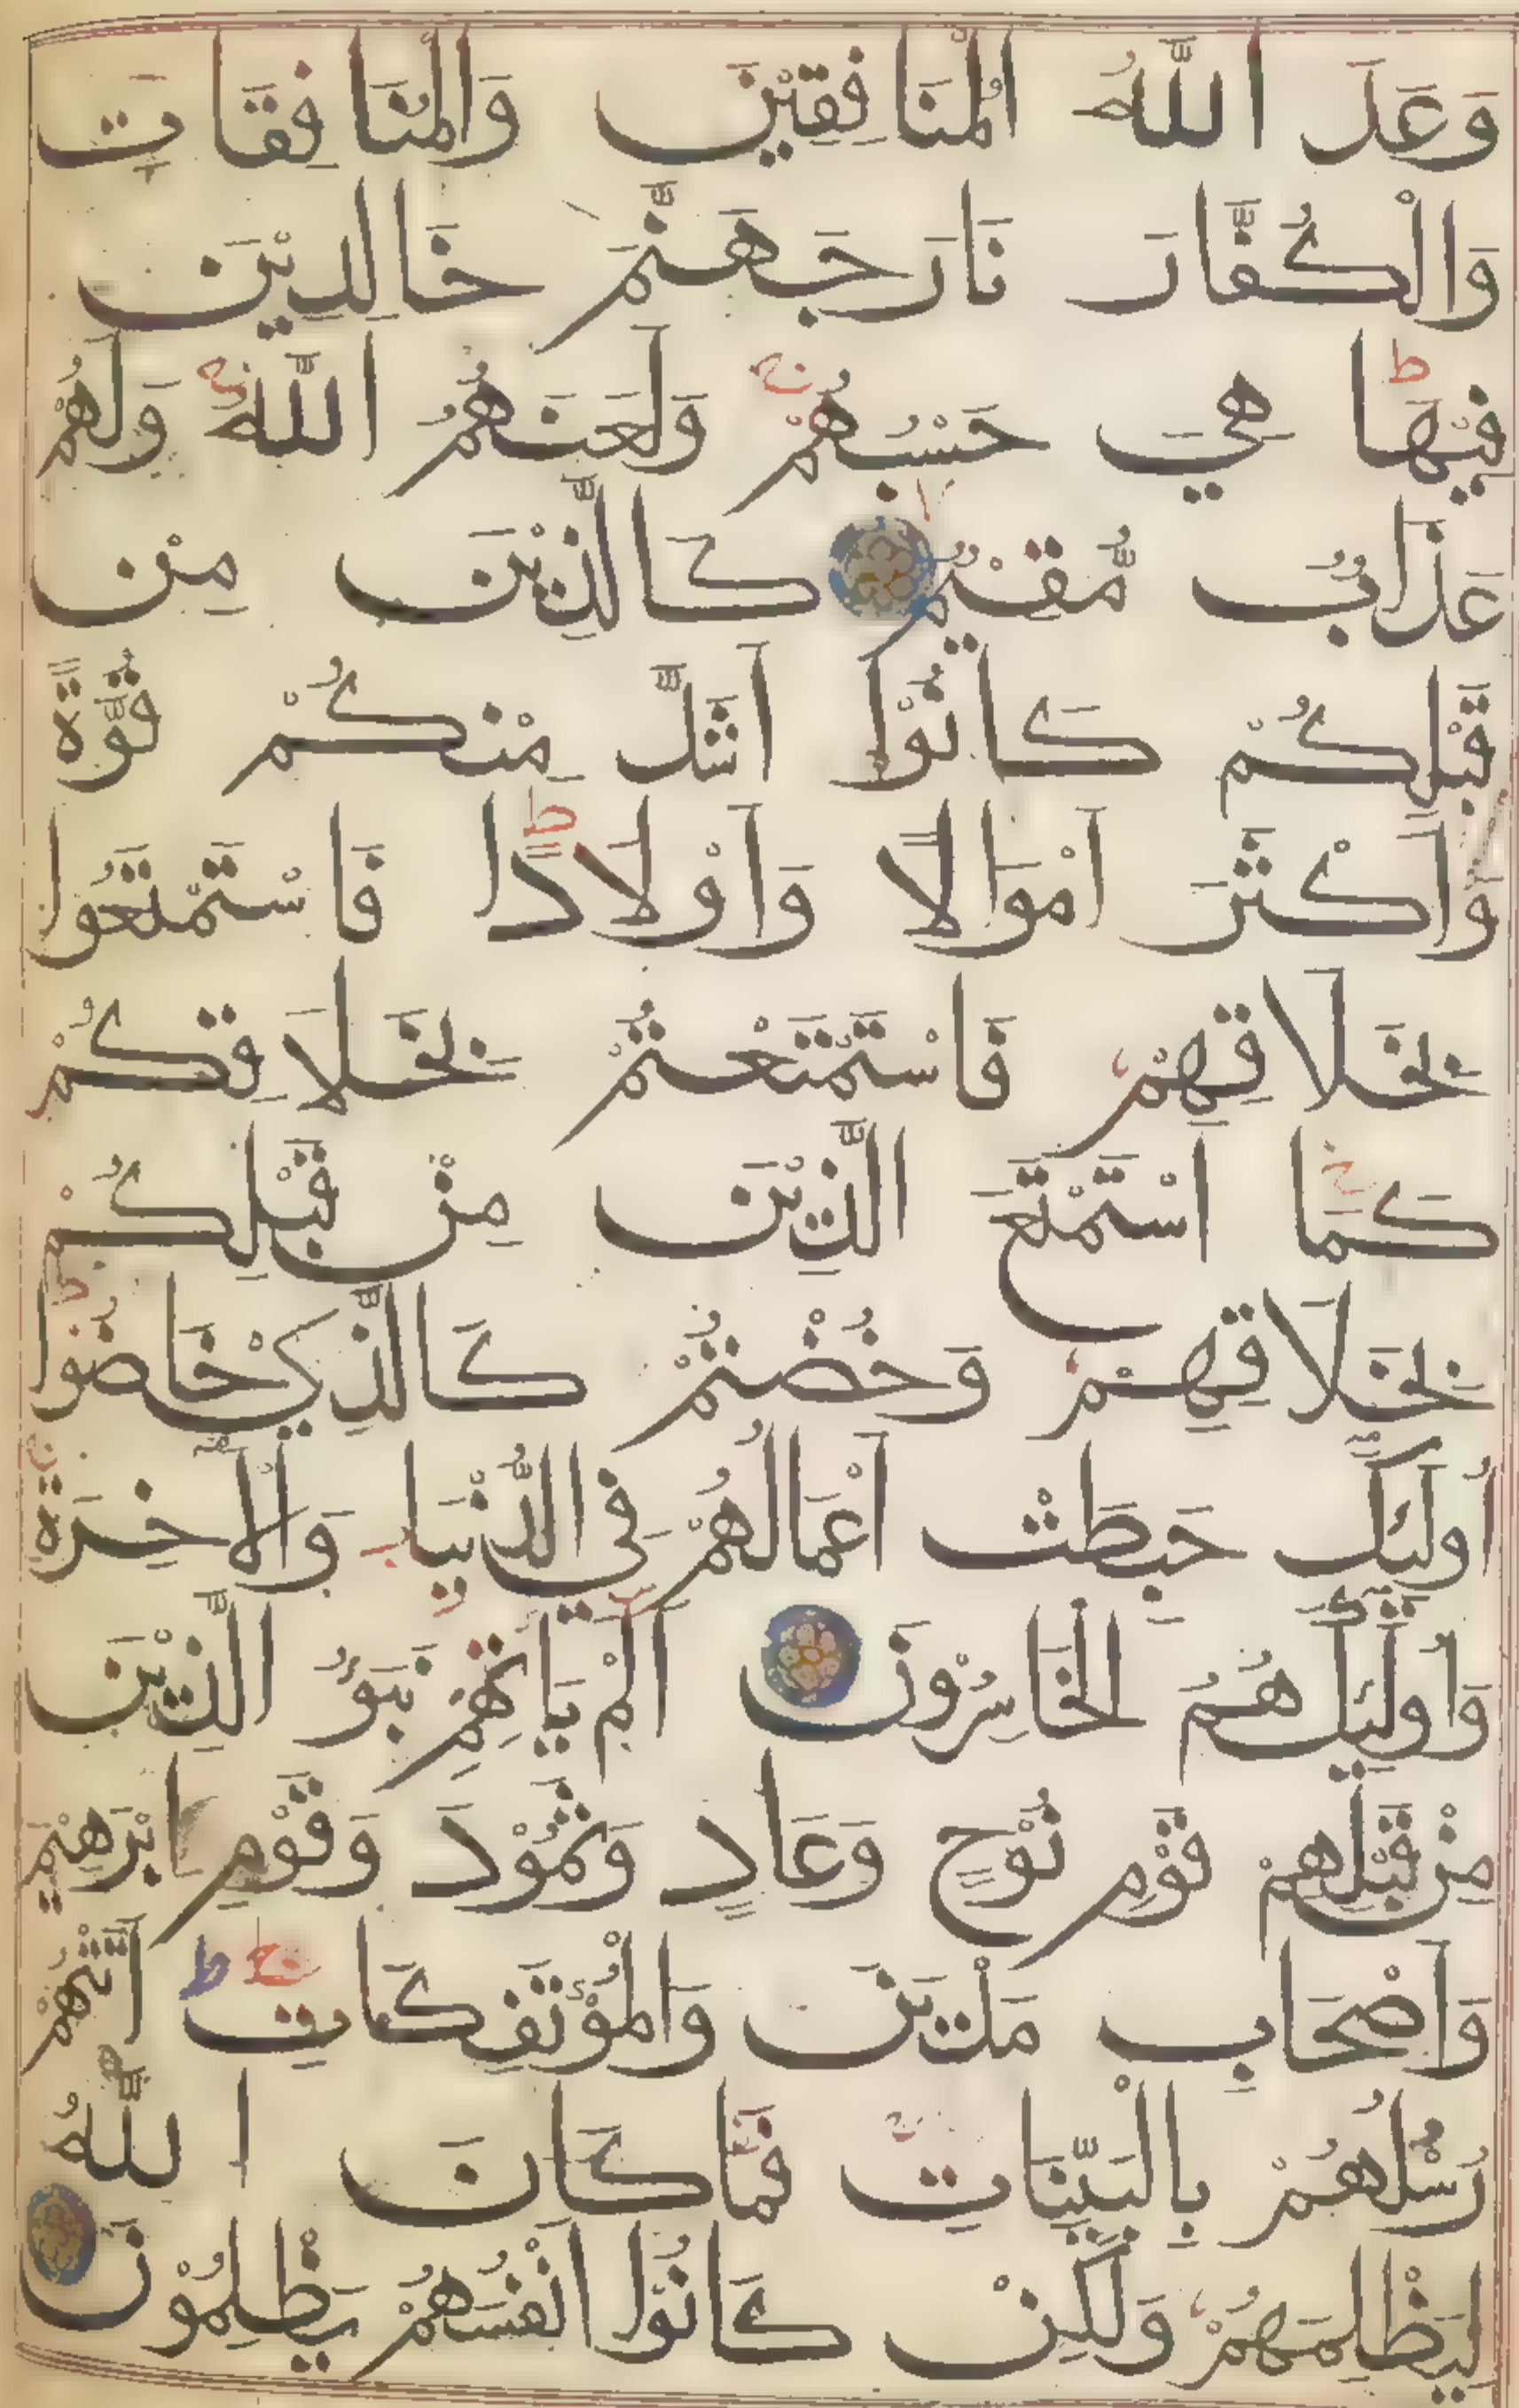 وَعَدَ اللَّهُ الْمُنَافِقِيْنَ وَالْمُنَافِقَاتِ
وَالْكُفَّارَ نَارَ جَهَنَّمَ خَالِدِيْنَ
فِيْهَا ط هِيَ حَسْبُهُمْ وَلَعَنَهُمُ اللَّهُ وَلَهُمْ
عَذَابٌ مُّقِيْمٌ كَالَّذِيْنَ مِنْ
قَبْلِكُمْ كَانُوْا اَشَدَّ مِنْكُمْ قُوَّةً
وَاَكْثَرَ اَمْوَالًا وَاَوْلَادًا ط فَاسْتَمْتَعُوا
بِخَلَاقِهِمْ فَاسْتَمْتَعْتُمْ بِخَلَاقِكُمْ
كَمَا اسْتَمْتَعَ الَّذِيْنَ مِنْ قَبْلِكُمْ
بِخَلَاقِهِمْ وَخُضْتُمْ كَالَّذِيْ خَاضُوا
أُولَئِكَ حَبِطَتْ أَعْمَالُهُمْ فِي الدُّنْيَا وَالْآخِرَةِ
وَاُولَئِكَ هُمُ الْخَاسِرُوْنَ اَلَمْ يَاْتِهِمْ نَبَؤُ الَّذِيْنَ
مِنْ قَبْلِهِمْ قَوْمِ نُوْحٍ وَعَادٍ وَثَمُوْدَ وَقَوْمِ اِبْرَهِيْمَ
وَاَصْحَابِ مَدْيَنَ وَالْمُؤْتَفِكَاتِ ط اَتَتْهُمْ
رُسُلُهُمْ بِالْبَيِّنَاتِ فَمَا كَانَ اللَّهُ
لِيَظْلِمَهُمْ وَلَكِنْ كَانُوْا اَنْفُسَهُمْ يَظْلِمُوْنَ